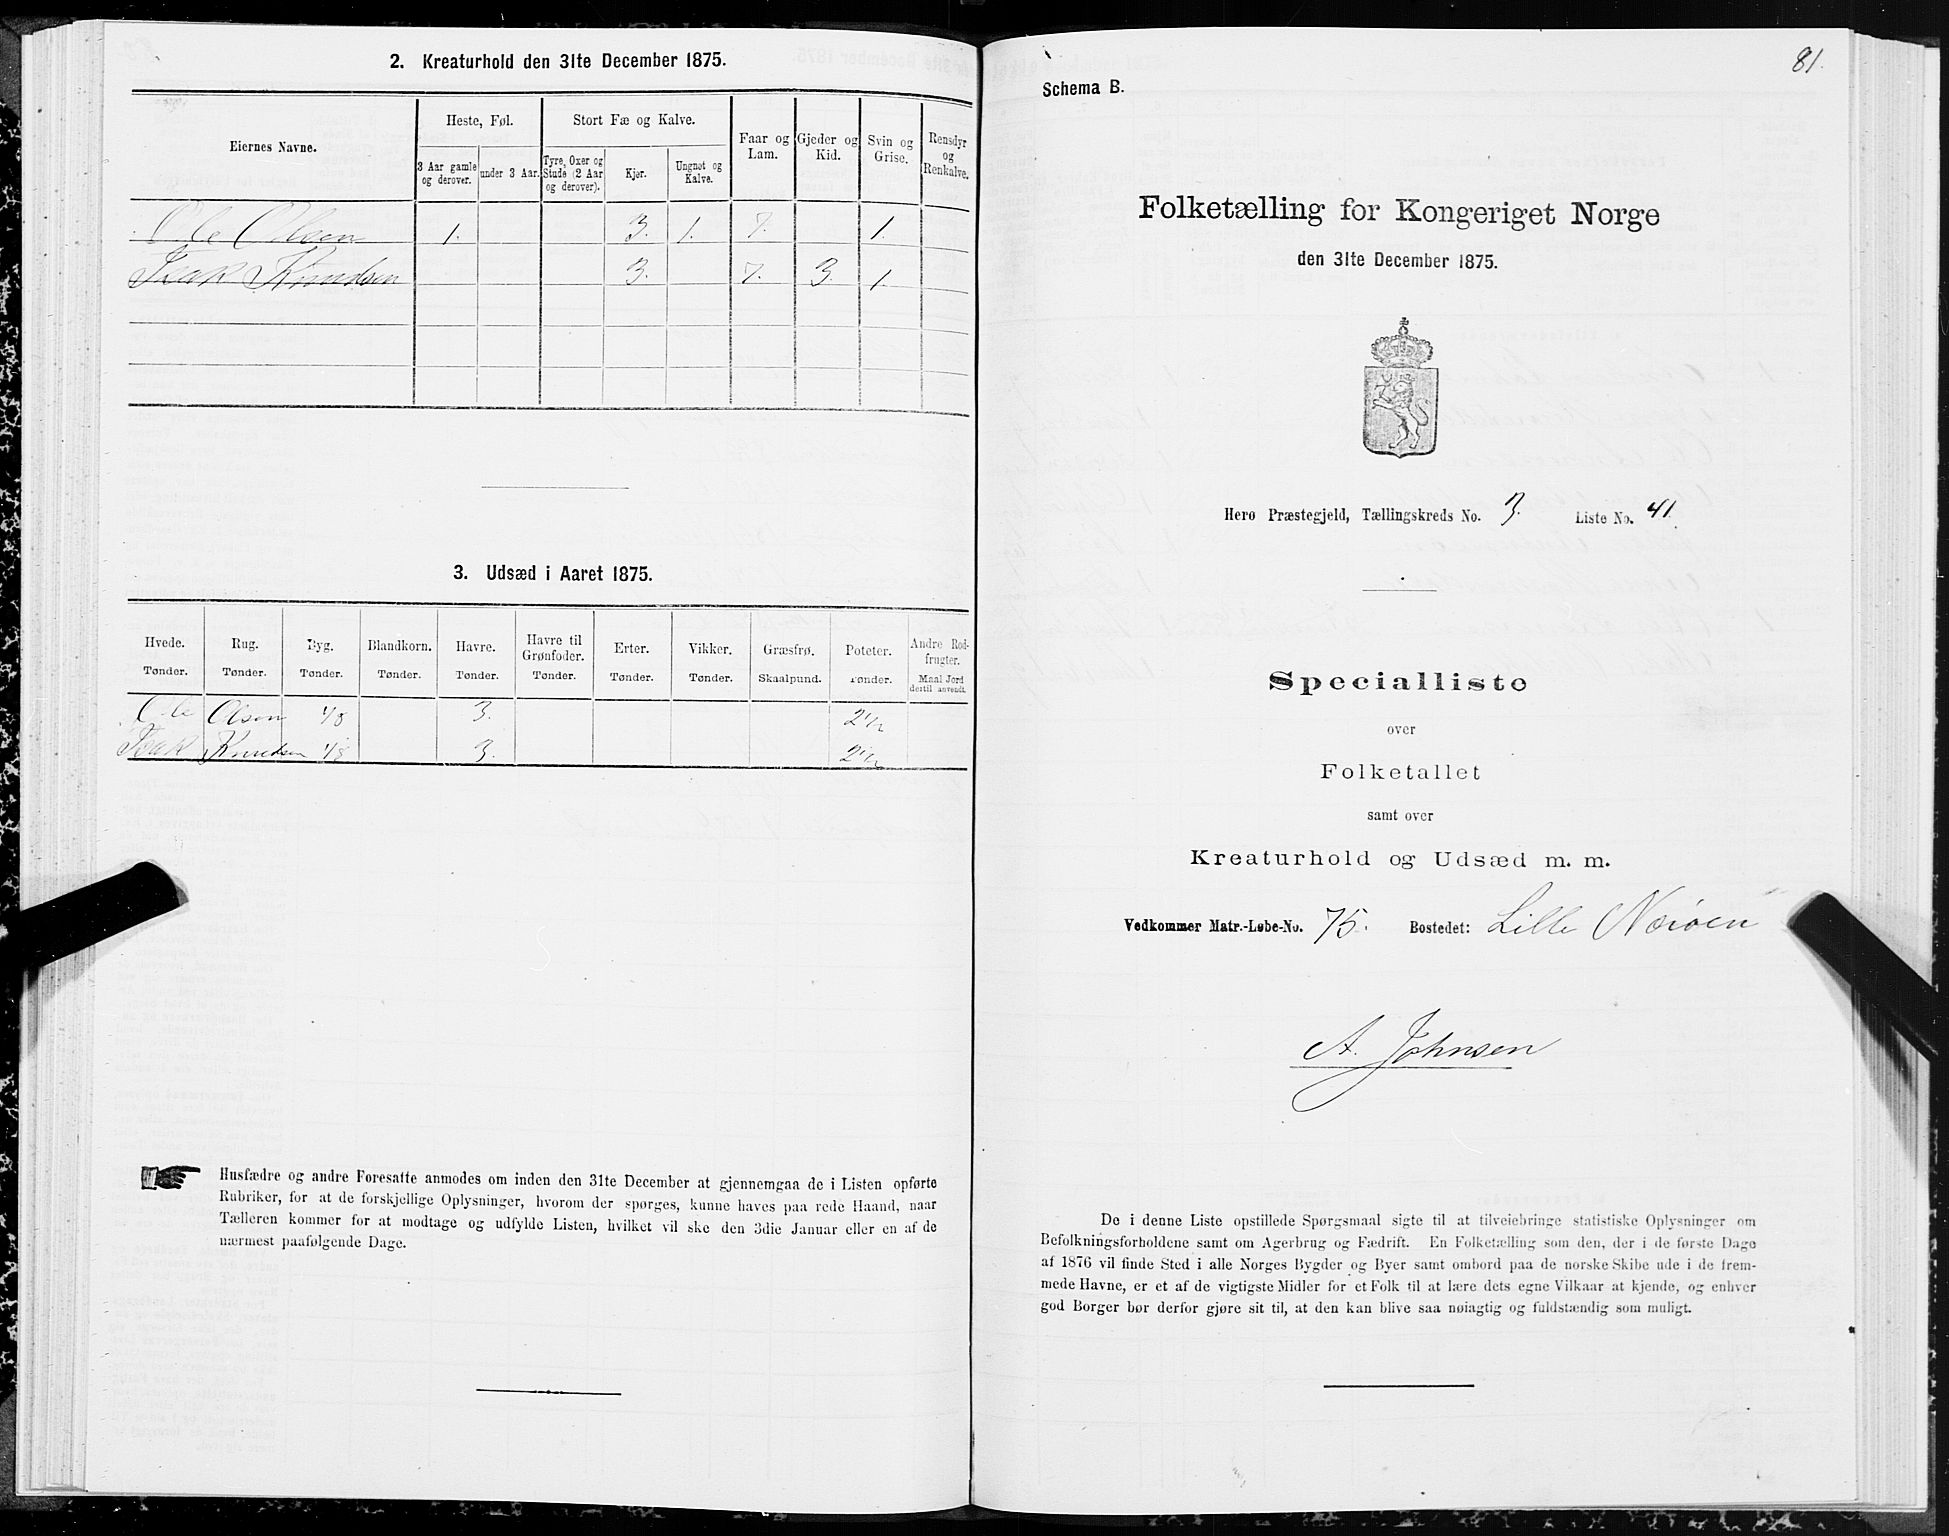 2. Kreaturhold den 31te December 1875.
Eiernes Navne.
Heste, Føl.
Stort Fæ og Kalve.
Faar og Lam.
Gjeder og Kid.
Svin og Grise.
Rensdyr og Renkalve.
3 Aar gamle og derover.
under 3 Aar.
Tyre, Oxer og Stude (2 Aar og derover).
Kjør.
Ungnøt og Kalve.
Ole Olsen 1. 3. 1. 7. 1.
Isak Knudsen 3. 7. 3. 1.
3. Udsæd i Aaret 1875.
Hvede. Rug. Byg. Blandkorn. Havre. Havre til Grønfoder. Erter. Vikker. Græsfrø. Poteter. Andre Rodfrugter.
Tønder. Tønder. Tønder. Tønder. Tønder. Tønder. Tønder. Tønder. Skaalpund. Tønder. Maal Jord dertil anvendt.
Ole Olsen 1/8 3. 2 1/2
Isak Knudsen 1/8 3. 2 1/2
Husfædre og andre Foresatte anmodes om inden den 31te December at gjennemgaa de i Listen opførte
Rubriker, for at de forskjellige Oplysninger, hvorom der spørges, kunne haves paa rede Haand, naar
Tælleren kommer for at modtage og udfylde Listen, hvilket vil ske den 3die Januar eller en af de
nærmest paafølgende Dage.
81.
Schema B.
Folketælling for Kongeriget Norge
den 31te December 1875.
Herø Præstegjeld, Tællingskreds No. 3. Liste No. 41.
Specialliste
over
Folketallet
samt over
Kreaturhold og Udsæd m. m.
Vedkommer Matr.-Løbe-No. 75. Bostedet: Lille Nørøen
A. Johnsen
De i denne Liste opstillede Spørgsmaal sigte til at tilveiebringe statistiske Oplysninger om
Befolkningsforholdene samt om Agerbrug og Fædrift. En Folketælling som den, der i de første Dage
af 1876 vil finde Sted i alle Norges Bygder og Byer samt ombord paa de norske Skibe ude i de frem-
mede Havne, er et af de vigtigste Midler for et Folk til at lære dets egne Vilkaar at kjende, og enhver
god Borger bør derfor gjøre sit til, at den kan blive saa nøiagtig og fuldstændig som muligt.